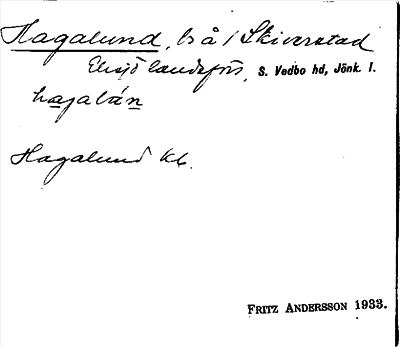 Hagalund, ls å / Skiverstad
Eksjö landsförs. S. Vedbo hd, Jönk. l.
hagalán
Hagalund kb.
FRITZ ANDERSSON 1933.